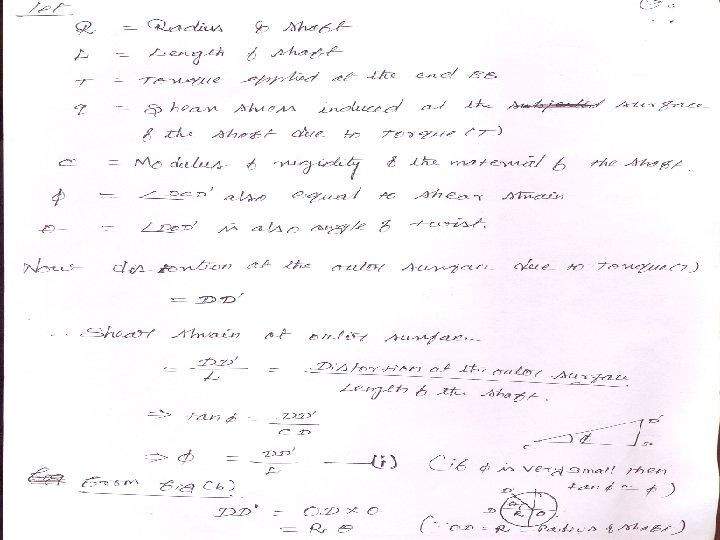 Let
R = Radius of shaft
L = Length of shaft
T = Torque applied at the end BB
q = Shear stress induced at the surface
of the shaft due to Torque (T)
C = Modulus of rigidity of the material of the shaft.
ϕ = ∠DCD' also equal to shear strain
θ = ∠DOD' is also angle of twist.
Now distortion at the outer surface due to Torque(T)
= DD'
∴ Shear strain at outer surface
= DD'/L = Distortion at the outer surface / Length of the shaft.
⇒ tan ϕ = DD'/CD
⇒ ϕ = DD'/L —— (i) (if ϕ is very small then
tan ϕ ≈ ϕ)
C ϕ D' D
From fig (b)
DD' = OD × θ
= Rθ (∵ OD = R = Radius of shaft)
D' D θ R O